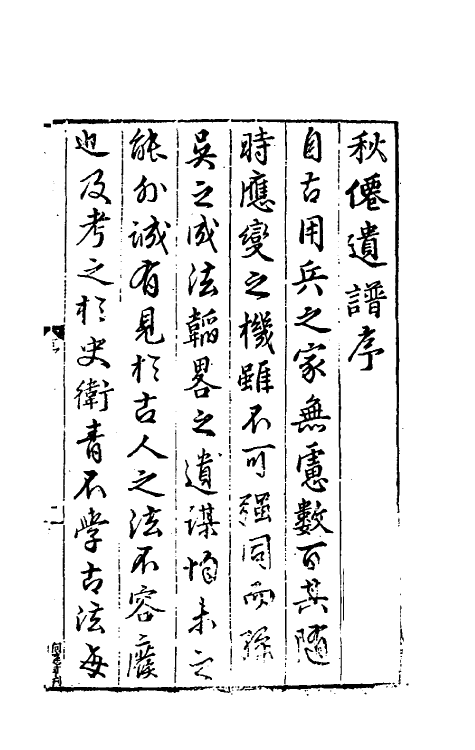 秋僊遺譜序
自古用兵之家無慮數百其隨
時應變之機雖不可強同而孫
吳之成法韜畧之遺謀恂未之
能外誠有見於古人之法不容廢
也及考之於史衛青不學古法每